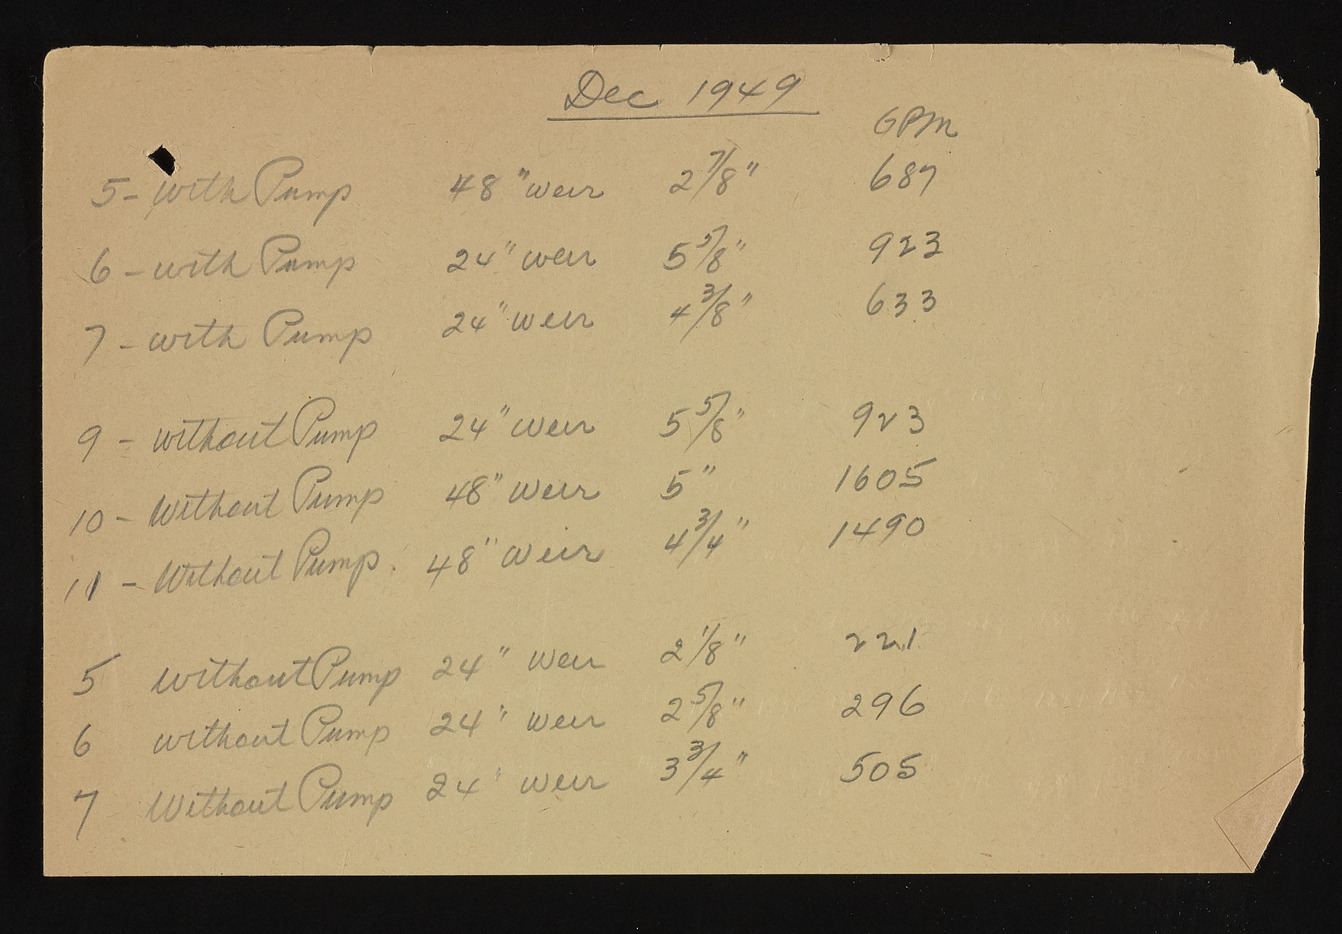 Dec 1949
GPM
5 - with Pump 48" weir 2 7/8" 687
6 - with Pump 24" weir 5 5/8" 923
7 - with Pump 24" weir 4 3/8" 633
9 - without Pump 24" weir 5 5/8" 923
10 - Without Pump 48" weir 5" 1605
11 - Without Pump. 48" weir 4 3/4" 1490
5 without Pump 24" weir 2 1/8" 221
6 without Pump 24" weir 2 5/8" 296
7 Without Pump 24" weir 3 3/4" 505